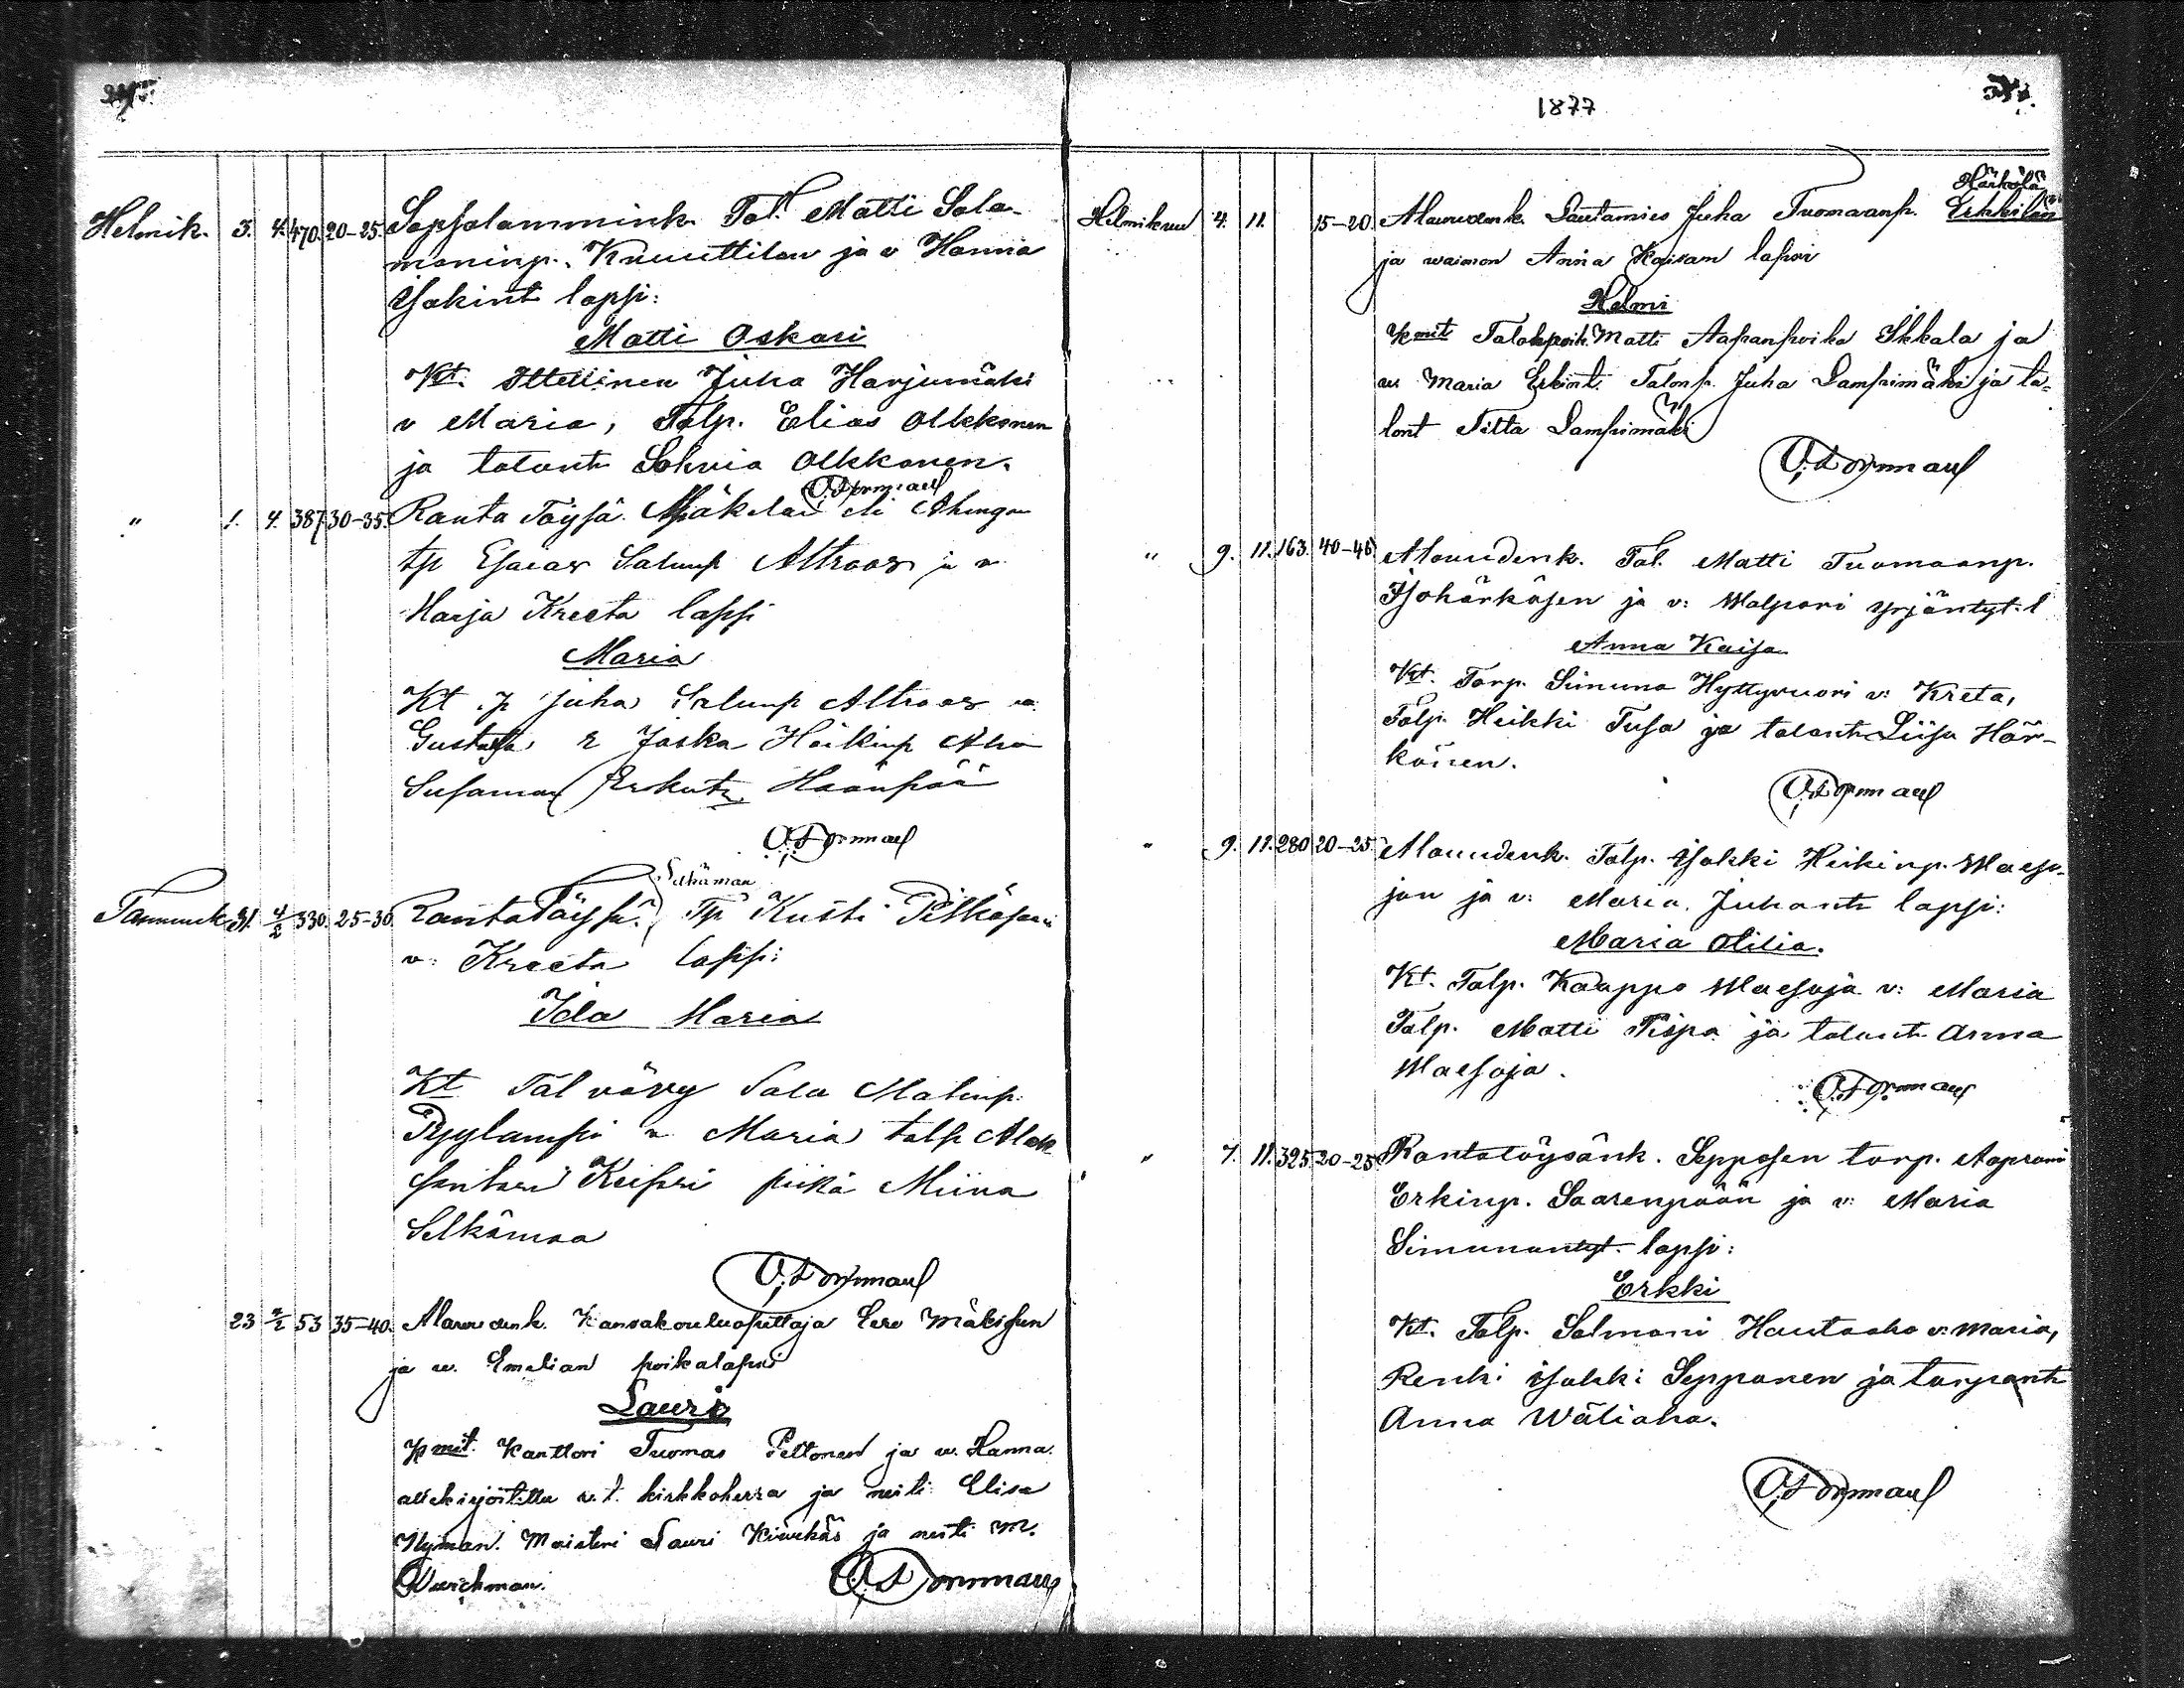 1877
Helmik. 3. 4. 470. 20-25. Sapsalammink. Tal. Matti Salo-
moninp. Knuuttilan ja v Hanna
Isakint lapsi:
Matti Oskari
Kt. Itellinen Juha Harjumäki
v Maria, Talp. Elias Olkkonen
ja talont Sohvia Olkkonen.
" 1. 4. 387 30-35. Ranta Töysä. Mäkelän eli
tp Esaias Salamp Altroos ja v.
Marja Kreeta lapsi
Maria
Kt. Juha Altroos
Gustava, Jaska Heikinp Aho
Susanna Erkint Haanpää
Tammik. 31. 4/2 330. 25-30. Ranta Töysä. Selkämaan Tp Kusti Pitkäsen
v: Kreeta lapsi:
Ida Maria
Kt Tal vävy Salu Matinp.
Pyylampi v. Maria talp Alek
santeri Keisri piika Miina
Selkämaa
23 4/2 53 35-40. Alavudenk. Kansakouluopettaja Eero Mäkisen
ja w. Emelian poikalapsi
Lauri
Kmit. Kanttori Tuomas Peltonen ja w. Hanna.
allekirjoitettu v.t. kirkkoherra ja neiti Elisa
Nyman. Maisteri Lauri Kivekäs ja neiti M.
Helmikuu 4. 11. 15-20. Alavudenk. Lautamies Juha Tuomaanp. Härkölä Erkkilän
ja waimon Anna Kaisan lapsi
Helmi
Kmit Talokpoik. Matti Aapanpoika Ikkala ja
w. Maria Erkint. Talonp. Juha Lampimäki ja ta-
lont Titta Lampimäki
" 9. 11. 163. 40-45. Alavudenk. Tal. Matti Tuomaanp.
Isohärkösen ja v: Walpori Yrjäntyt. l
Anna Kaisa
Kt. Torp. Simuna Hyttyvuori v: Kreta,
Talp. Heikki Tusa ja talont. Liisa Här-
könen.
" 9. 11. 280 20-25 Alavudenk. Talp. Isakki Heikinp. Maeso-
jan ja v: Maria Juhant lapsi:
Maria Otilia.
Kt. Talp. Kaappo Maesoja v: Maria
Talp. Matti Piispa ja talont Anna
Maesoja.
" 7. 11. 325 20-25. Rantatöysänk. Sepposen torp. Aaprami
Erkinp. Saarenpään ja v: Maria
Simunantyt. lapsi:
Erkki
Kt. Talp. Salmoni Hautaaho v: Maria,
Renki Isakki Sepponen ja torpant
Anna Wäliaho.